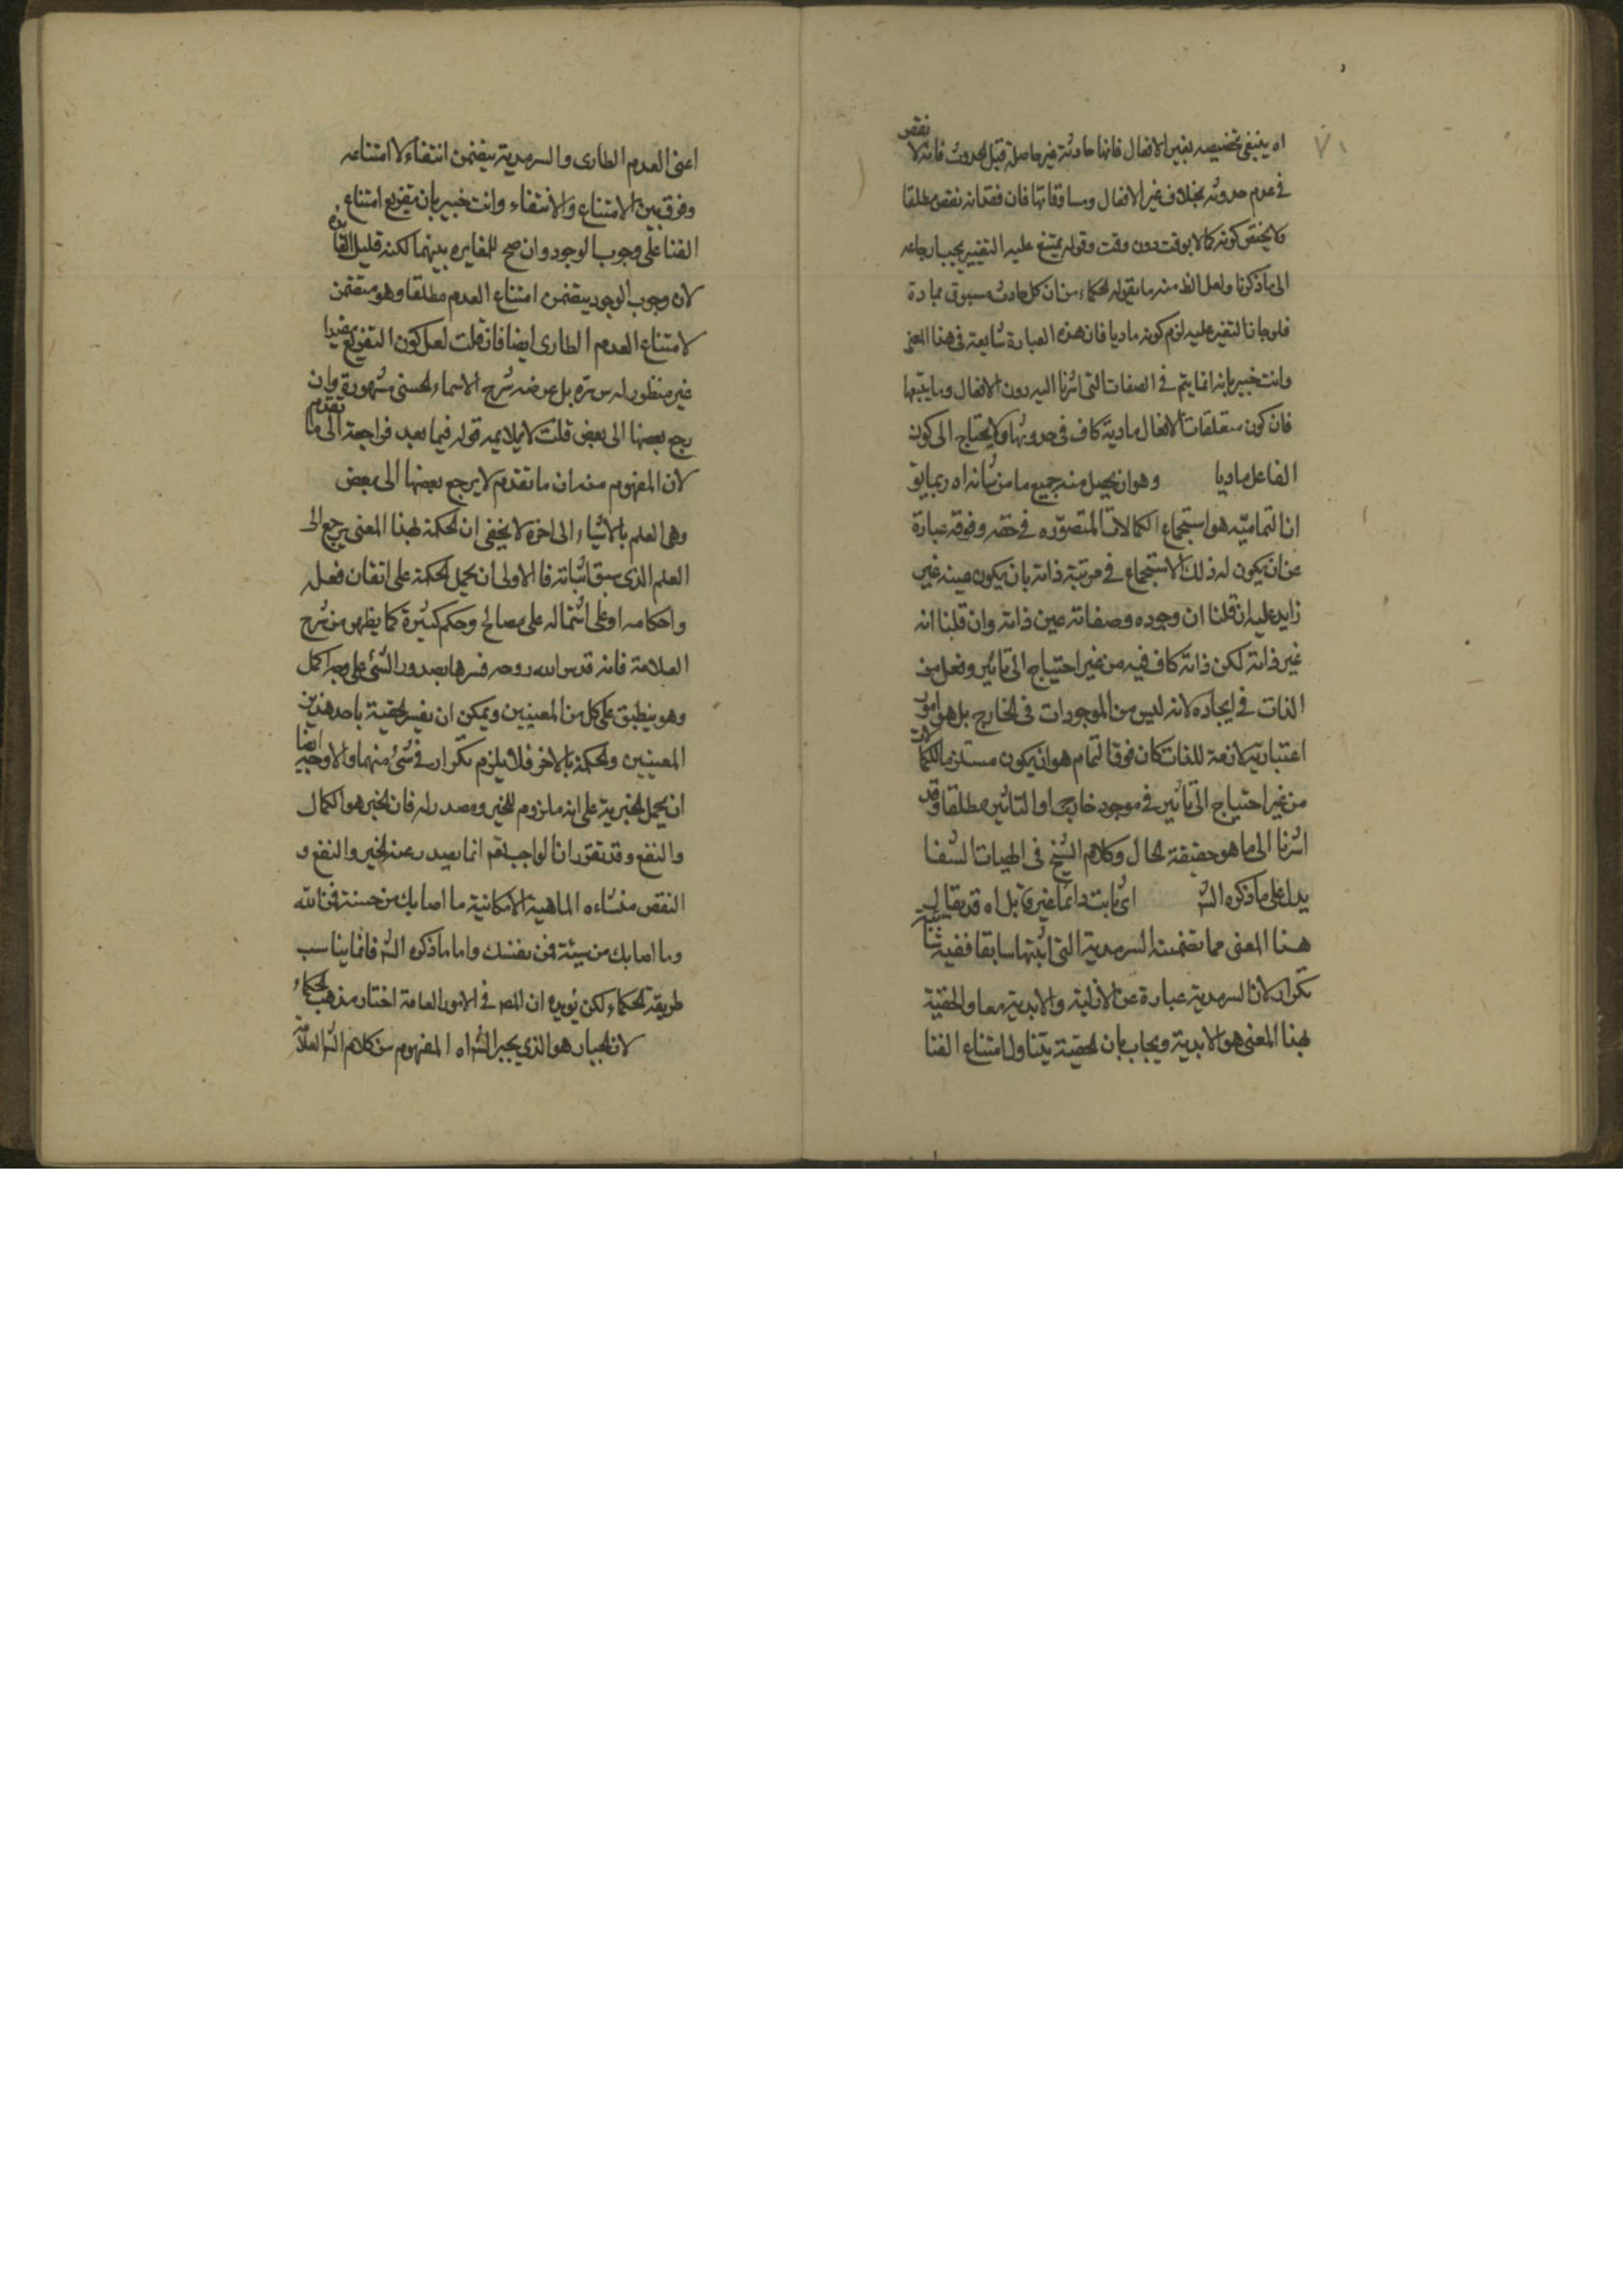 ٧١
اه ينبغى تخصيصه بغير الافعال فانها حادثة غير حاصلة قبل الحدوث فانه لا نقص
فى عدم حدوثه بخلاف غير الافعال ومساوقاتها فان فقدانه نقص مطلقا
ولا يختص كونه كمالا بوقت دون وقت وقوله يمتنع عليه التغيير يجب ارجاعه
الى ما ذكرنا ولعل الظ منه ما يقوله الحكماء من ان كل حادث مسبوق بمادة
فلو جاز التغير عليه لزم كونه ماديا فان هذه العبارة شايعة فى هذا المعنى
وانت خبير بانه انما يتم فى الصفات التى اشرنا اليه دون الافعال وما يتبعها
فان كون متعلقات الافعال مادية كاف فى حدوثها ولا يحتاج الى كون
الفاعل ماديا وهو ان يحصل منه جميع ما من شانه اه ربما يق
ان التمامية هو استجماع الكمالات المتصوره فى حقه وفوقه عبارة
عن ان يكون له ذلك الاستجماع فى مرتبة ذاته بان يكون عينه غير
زايد عليه ان قلنا ان وجوده وصفاته عين ذاته وان قلنا انه
غير ذاته لكن ذاته كاف فيه من غير احتياج الى تاثير وفعل من
الذات فى ايجاده لانه ليس من الموجودات فى الخارج بل هو امور
اعتبارية لازمة للذات كان فوق التمام هو ان يكون مستلزما للكمالات
من غير احتياج الى تاثير فى موجود خارجى او التاثير مطلقا وقد
اشرنا الى ما هو حقيقة الحال وكلام الشيخ فى الهيات الشفا
يدل على ما ذكره الش اى ثابت دائما غير قابل اه قد يقال
هذا المعنى مما تضمنته السرمدية التى اثبتها سابقا ففيه شائبة
تكرار لان السرمدية عبارة عن الازلية والابدية معا والحقية
بهذا المعنى هو الابدية ويجاب بان الحقية يتناول امتناع الفنا
اعنى العدم الطارى والسرمدية يتضمن انتفاءه لا امتناعه
وفرق بين الامتناع والانتفاء وانت خبير بان تفريع امتناع
الفنا على وجوب الوجود وان صح للمغايره بينهما لكنه قليل الفائده
لان وجوب الوجود يتضمن امتناع العدم مطلقا وهو متضمن
لامتناع العدم الطارى ايضا فان قلت لعل كون التفريع مفيدا
غير منظور له بل غرضه شرح الاسماء الحسنى مشهورة وان
رجع بعضها الى بعض قلت لا يلايمه قوله فيما بعد فراجعة الى ما تقدم
لان المفهوم منه ان ما تقدم لا يرجع بعضها الى بعض
وهى العلم بالاشياء الى اخره لا يخفى ان الحكمة بهذا المعنى يرجع الى
العلم الذى سبق اثباته فالاولى ان يحمل الحكمة على اتقان فعله
واحكامه او على اشتماله على مصالح وحكم كثيرة كما يظهر من شرح
العلامة فانه قدس الله روحه فسرها بصدور الشئ على وجه اكمل
وهو ينطبق على كل من المعنيين ويمكن ان يفسر الحقية باحد هذين
المعنيين والحكمة بالاخر فلا يلزم تكرار فى شئ منهما والاوجه ايضا
ان يحمل الخيرية على انه ملزوم للخير ومصدر له فان الخير هو الكمال
والنفع وقد تقرر ان الواجب تعم انما يصدر عنه الخير والنفع و
النقص منشاءه الماهية الامكانية ما اصابك من حسنة فمن الله
وما اصابك من سيئة فمن نفسك واما ما ذكره الش فانما يناسب
طريقة الحكماء لكن يؤيده ان المص فى الامور العامة اختار مذهب الحكماء
لان الجبار هو الذى يجبر الشئ اه المفهوم من كلام الش العلامة